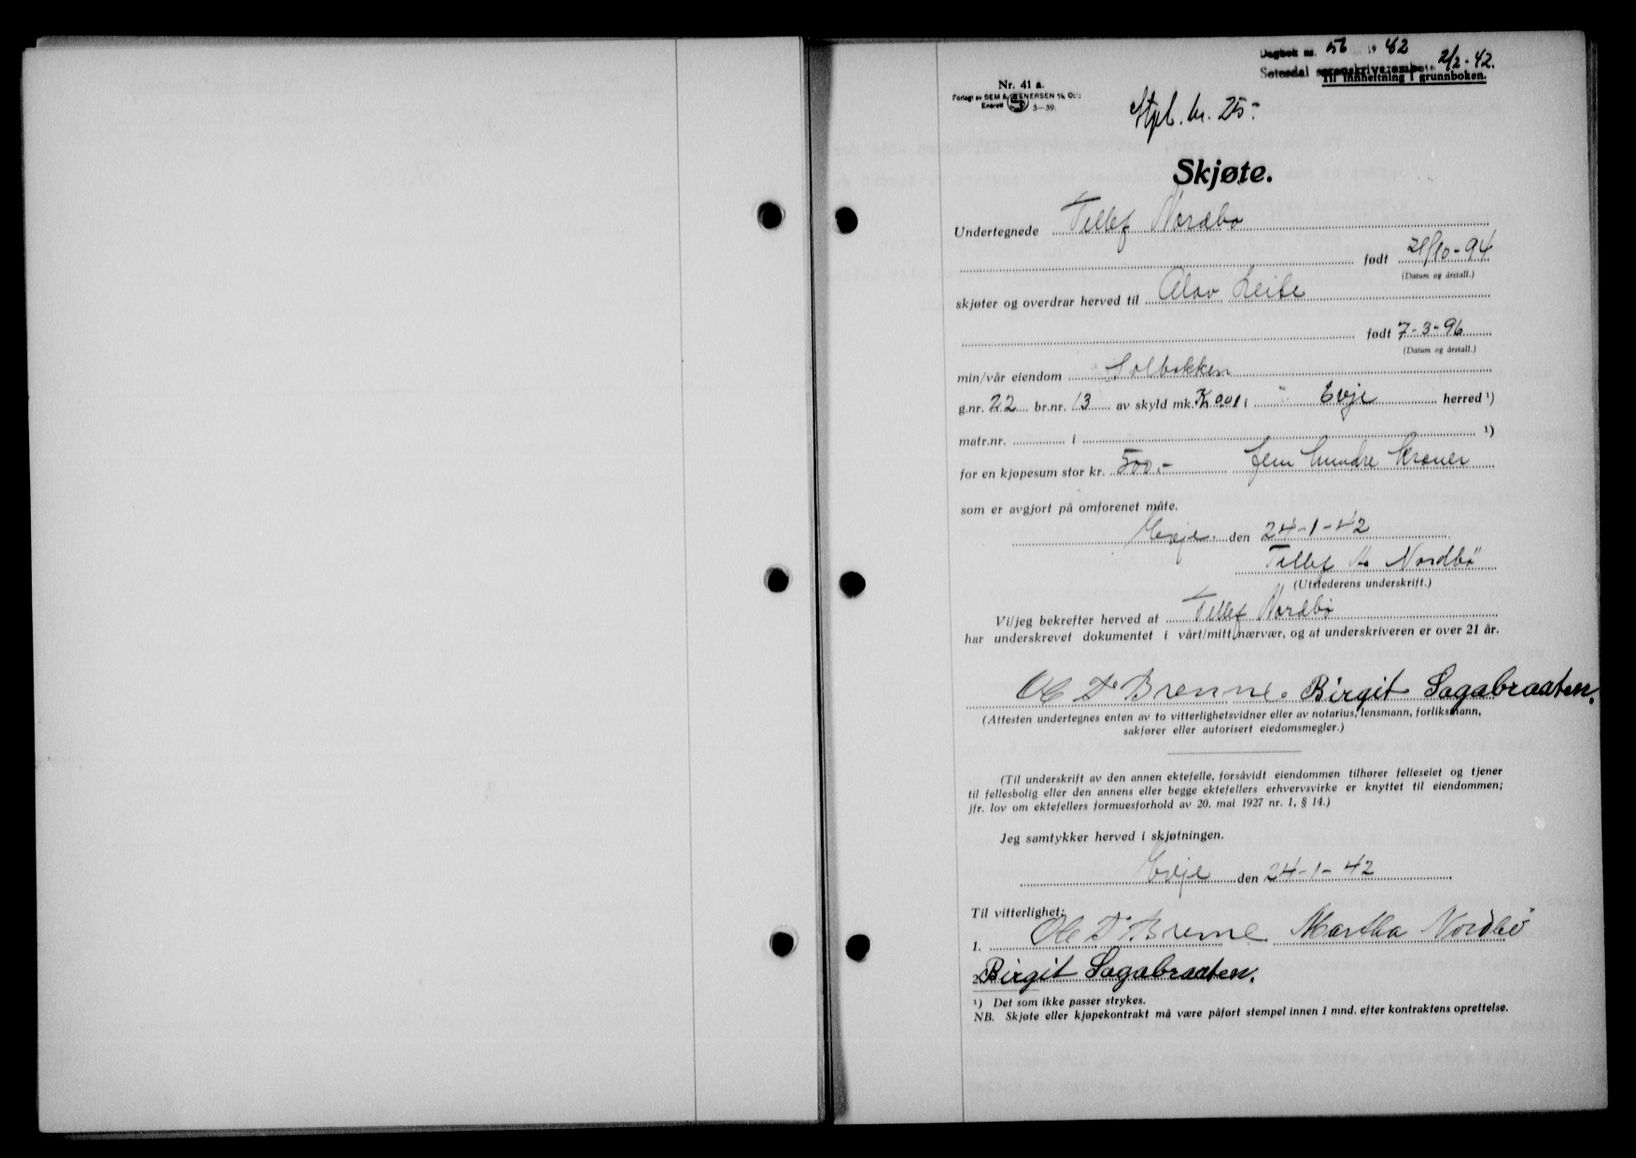 Dagbok nr. 56 19 42 2/2-42.
Setesdal sorenskriverembete
Til innheftning i grunnboken.
Nr. 41 a.
Forlagt av SEM & STENERSEN A/S, Oslo
Enerett S 3—39.
Stpl. kr. 25.-
Skjøte.
Undertegnede Tellef Nordbø
født 21/10-94
(Datum og årstall.)
skjøter og overdrar herved til Olav Leite
født 7-3-96
(Datum og årstall.)
min/vår eiendom Solbakken
g.nr. 22 br.nr. 13 av skyld mk. 0.01 i Evje herred ¹)
matr.nr. i ¹)
for en kjøpesum stor kr. 500.- fem hundre kroner
som er avgjort på omforenet måte.
Evje. den 24-1-42
Tellef Nordbö
(Utstederens underskrift.)
Vi/jeg bekrefter herved at Tellef Nordbø
har underskrevet dokumentet i vårt/mitt nærvær, og at underskriveren er over 21 år.
Ole T Brenne. Birgit Sagabraaten.
(Attesten undertegnes enten av to vitterlighetsvidner eller av notarius, lensmann, forliksmann,
sakfører eller autorisert eiedomsmegler.)
(Til underskrift av den annen ektefelle, forsåvidt eiendommen tilhører felleseiet og tjener
til fellesbolig eller den annens eller begge ektefellers erhvervsvirke er knyttet til eiendommen;
jfr. lov om ektefellers formuesforhold av 20. mai 1927 nr. 1, § 14.)
Jeg samtykker herved i skjøtningen.
Evje den 24-1-42
Til vitterlighet:
1. Ole T Brenne Martha Nordbö
2. Birgit Sagabraaten.
¹) Det som ikke passer strykes.
NB. Skjøte eller kjøpekontrakt må være påført stempel innen 1 mnd. efter kontraktens oprettelse.